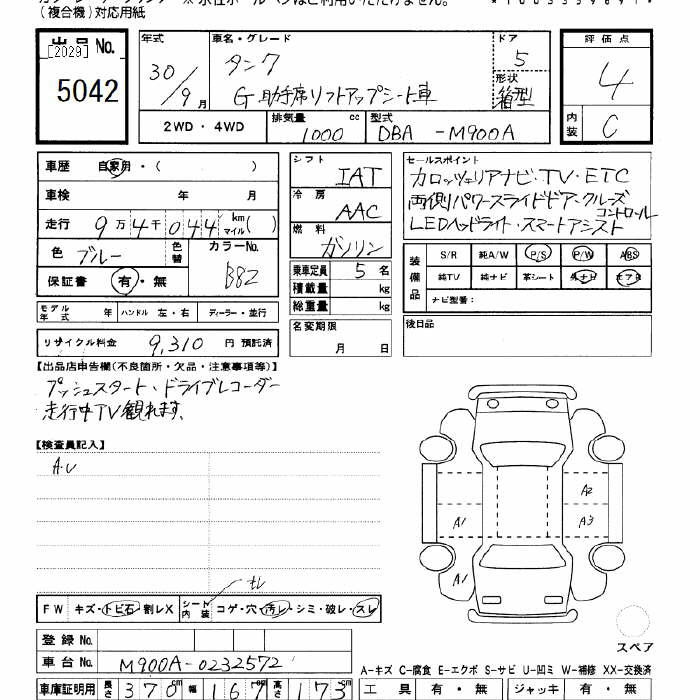 (複合機)対応用紙
出品No.
[2029]
5042
年式
30/9月
車名・グレード
タンク
G 助手席リフトアップシート車
ドア
5
形状
箱型
評価点
4
内装
C
2WD・4WD
排気量 cc
1000
型式
DBA -M900A
車歴 自家用・( )
車検 年 月
走行 9万4千044 km マイル( )
色 ブルー 色替 カラーNo. B82
保証書 有・無
モデル年式 年 ハンドル 左・右 ディーラー・並行
リサイクル料金 9,310 円 預託済
シフト
IAT
冷房
AAC
燃料
ガソリン
乗車定員 5 名
積載量 kg
総重量 kg
名変期限
月 日
セールスポイント
カロッツェリアナビ・TV・ETC
両側パワースライドドア・クルーズコントロール
LEDヘッドライト・スマートアシスト
装備品
S/R 純A/W P/S P/W ABS
純TV 純ナビ 革シート 外ナビ エアB
ナビ型番:
後日品
【出品店申告欄(不良箇所・欠品・注意事項等)】
プッシュスタート、ドライブレコーダー
走行中TV観れます。
【検査員記入】
A.U
A2
A1 A3
A1
FW キズ・トビ石・割レX シート内装 コゲ・穴・汚レ・シミ・破レ・スレ
スペア
登録No.
車台No. M900A-0232572
車庫証明用 長さ 370cm 幅 167cm 高さ 173cm
A-キズ C-腐食 E-エクボ S-サビ U-凹ミ W-補修 XX-交換済
工具 有・無 ジャッキ 有・無